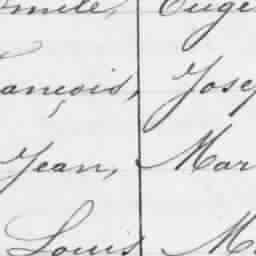 Emile, Euge
ançois, Josep
Jean, Mar
Louis M